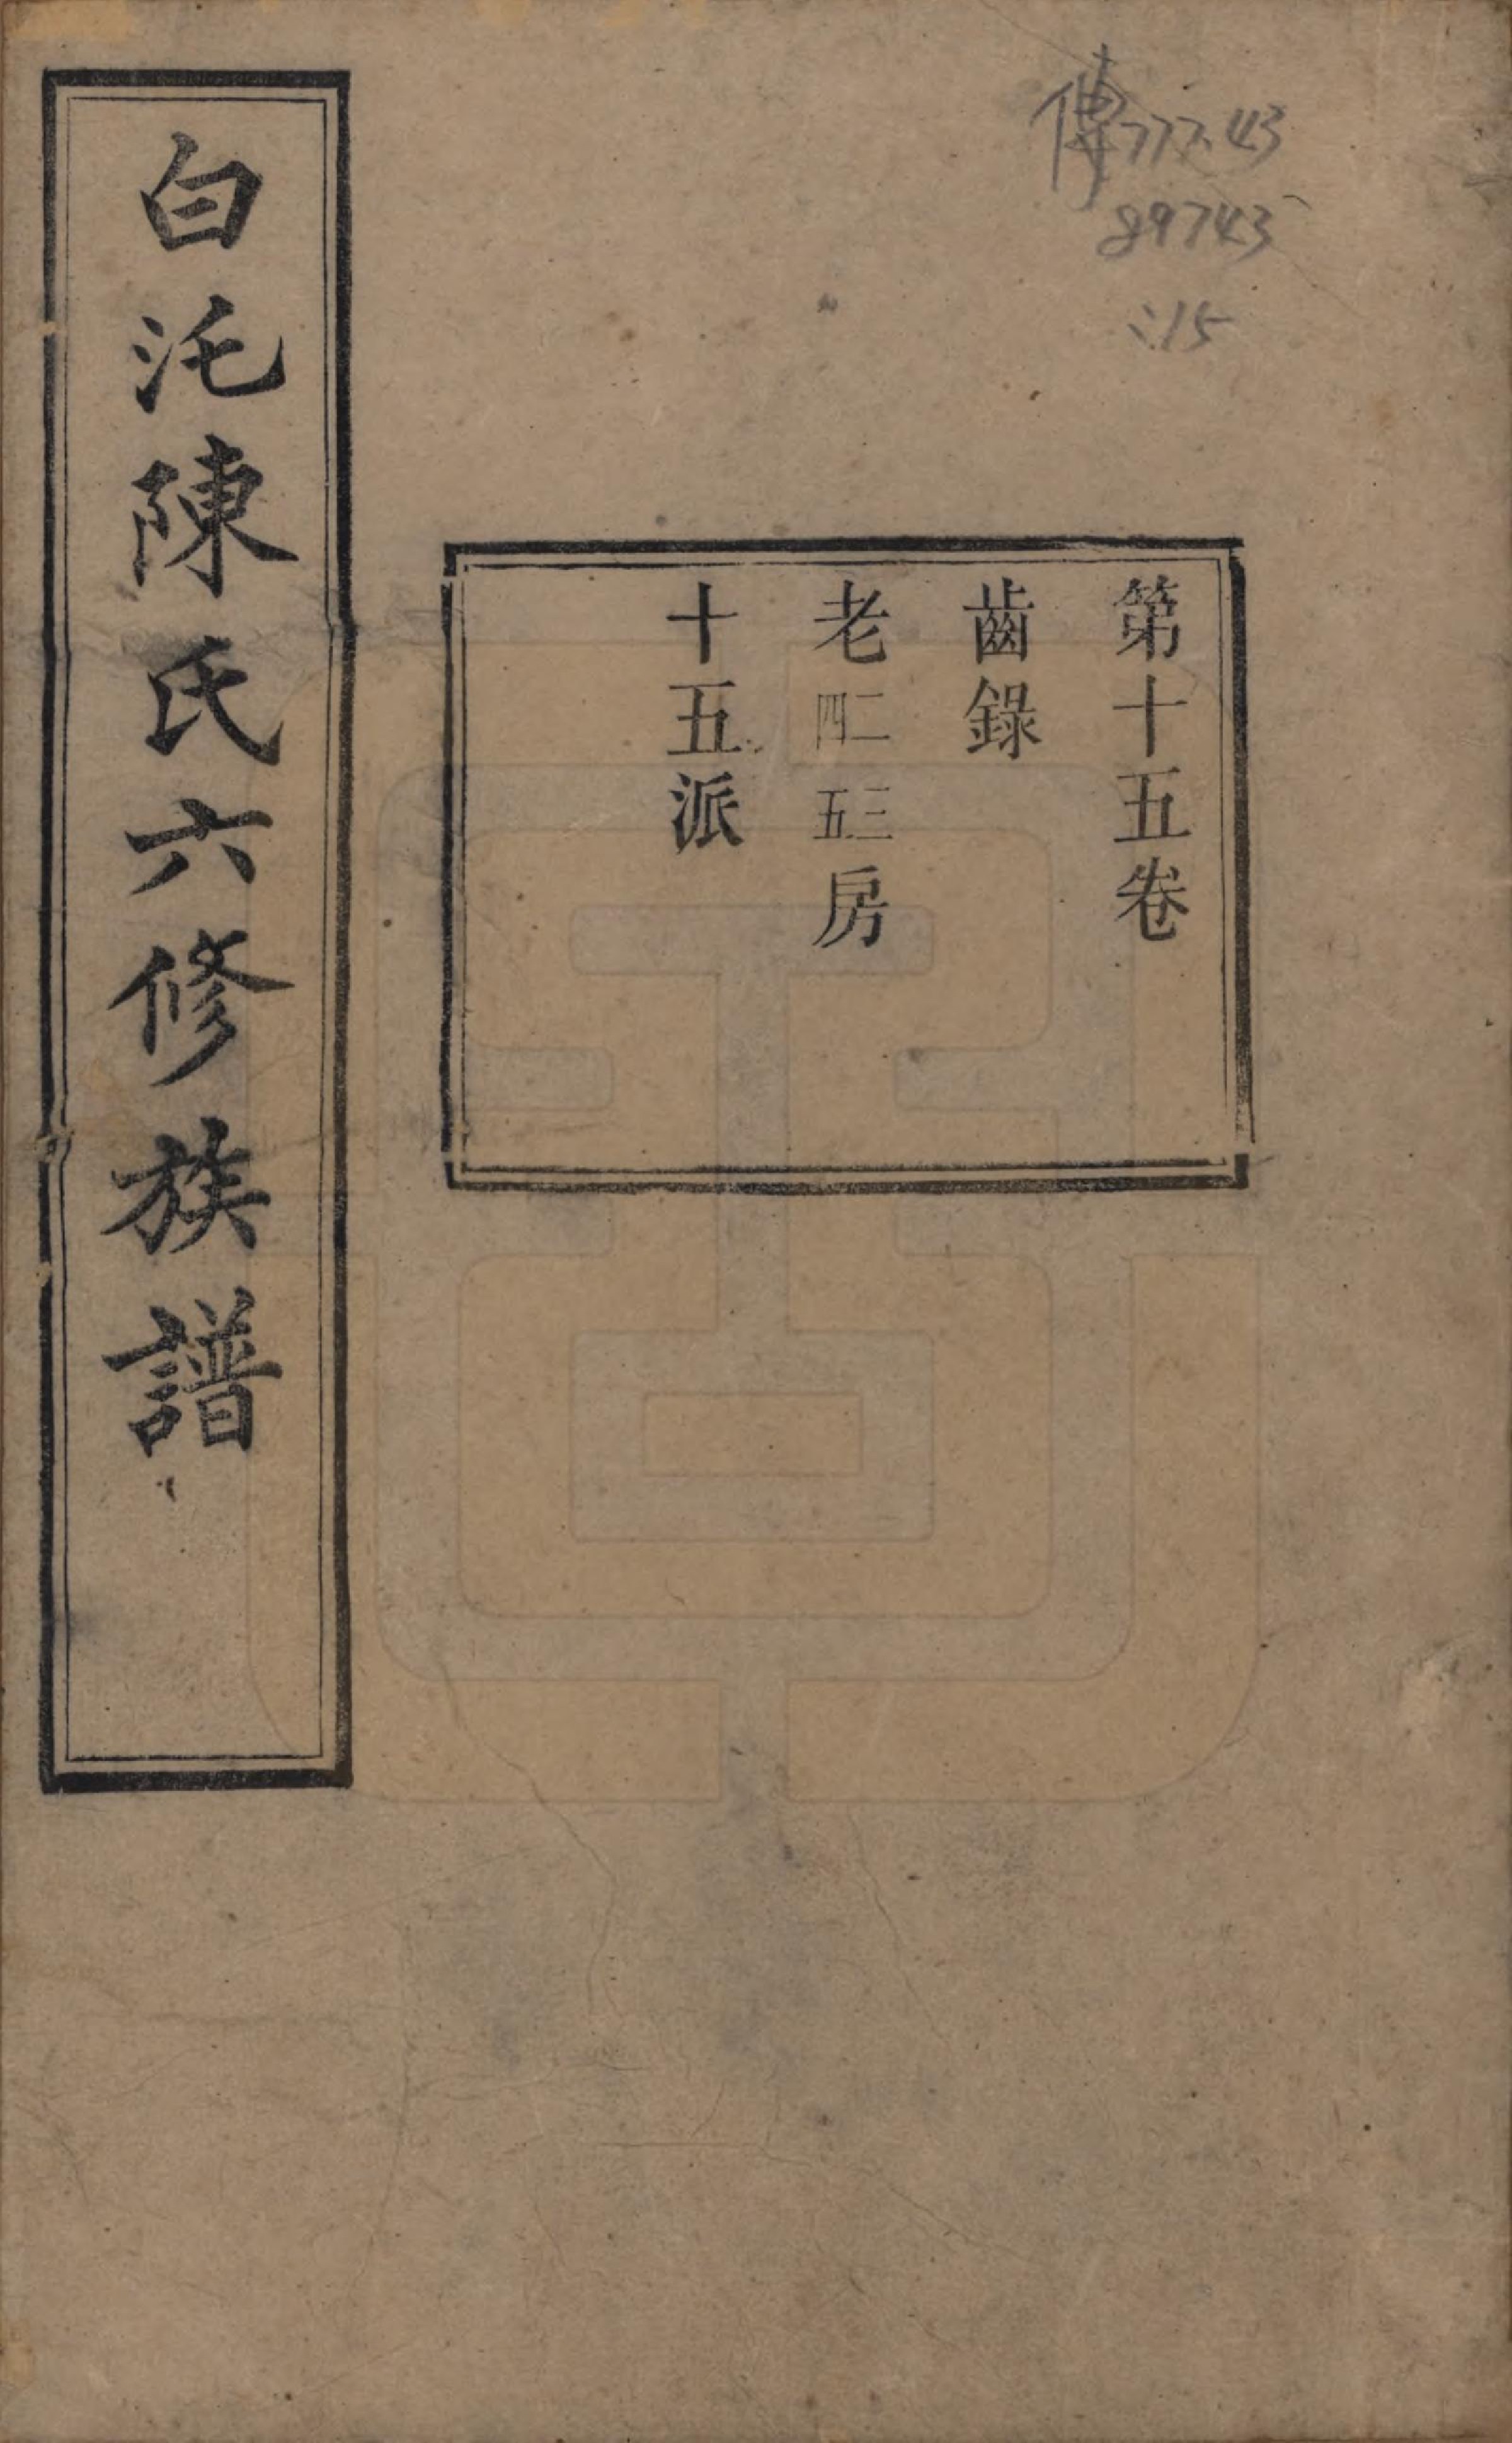 傳777.43
89743
:15
第十五卷
齒錄
老二三四五房
十五派
白沱陳氏六修族譜